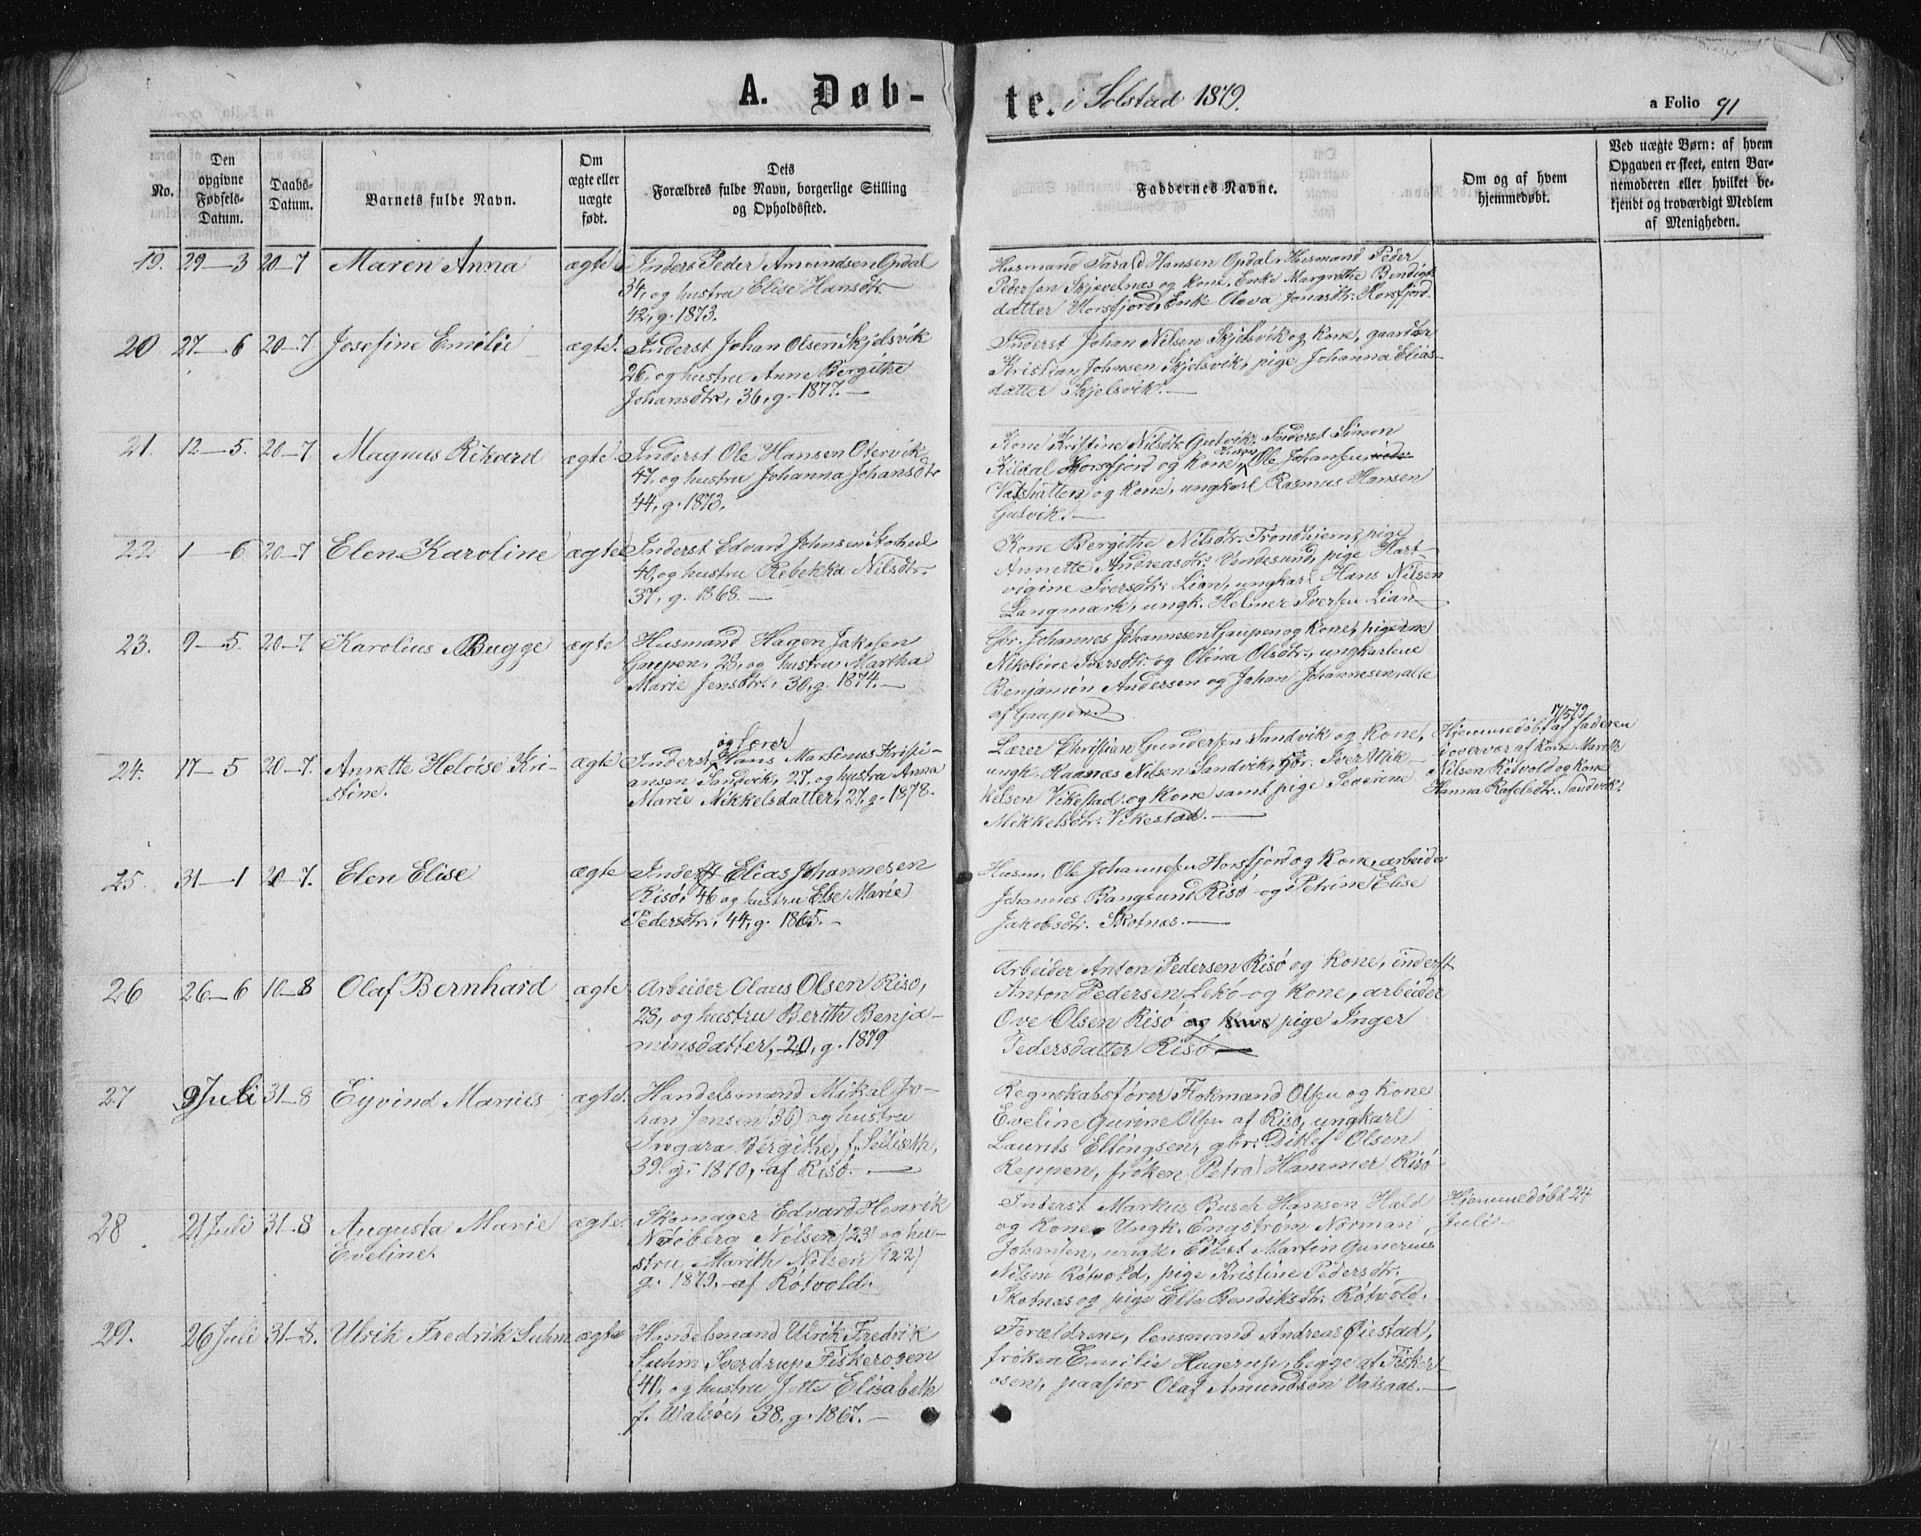 A. Døb-
te. i Solstad 1879.
a Folio 91
No.
Den opgivne Fødsels-Datum.
Daabs-Datum.
Barnets fulde Navn.
Om ægte eller uægte født.
Dets Forældres fulde Navn, borgerlige Stilling og Opholdssted.
Faddernes Navne.
Om og af hvem hjemmedøbt.
Ved uægte Børn: af hvem Opgaven er skeet, enten Barnemoderen eller hvilket bekjendt og troværdigt Medlem af Menigheden.
19. 29-3 20-7 Maren Anna ægte
Inderst Peder Amundsen Opdal
34, og hustru Elise Hansdtr.
42, g. 1873.
Husmand Tarald Hansen Opdal, Husmand Peder
Pedersen Skjevelnæs og kone, Enke Margrethe Bendigts
datter Horsfjord, Enke Oleva Jonasdtr. Horsfjord.
20 27-6 20-7 Josefine Emilie ægte.
Inderst Johan Olsen Skjelsvik
26, og hustru Anne Bergithe
Johansdtr, 36, g. 1877.
Inderst Johan Nilsen Skjelsvik og kone, gaardbr
Kristian Johnsen Skjelsvik, pige Johanna Elias-
datter Skjelsvik.
21. 12-5. 20-7 Magnus Rikard ægte
Inderst Ole Hansen Otervik
47, og hustru Johanna Johansdtr
44, g. 1873.
Kone Kristine Nilsdtr. Gutvik, Inderst Simon
Kildal Horsfjord og kone, Ole Johansen
Vatshatten og kone, ungkarl Rasmus Hansen
Gutvik.
22 1-6 20-7 Elen Karoline ægte
Inderst Edvard Johnsen
40, og hustru Rebekka Nilsdtr.
37, g. 1868.
Kone Bergithe Nilsdtr. Trondhjem, pige
Annette Andreasdtr. Vendesund, pige Hart-
vigine Iversdtr. Lian, ungkarl Hans Nilsen
Langmark, ungk. Helmer Iversen Lian
23. 9-5. 20-7 Karolius Bugge ægte
Husmand Hagen Jakobsen
Gaupen, 28, og hustru Martha
Marie Jensdtr, 30, g. 1874.
Gbr. Johannes Johannessen Gaupen og kone, pigerne
Nikoline Iversdtr. og Olina Olsdtr., ungkarlene
Benjamin Andersen og Johan Johannesen, alle
af Gaupen.
24. 17-5 20-7. Annette Heloise Kri-
stine. ægte
og Lærer
Inderst Hans Martinus Kristi-
ansen Sandvik, 27, og hustru Anna
Marie Mikkelsdatter, 27, g. 1878.
Lærer Christian Gundersen Sandvik og kone,
ungk. Rasmus Nilsen Sandvik, Gbr. Iver Mik-
kelsen Vikestad og kone samt pige Severine
Mikkelsdtr. Vikestad.
17/5 79
Hjemmedøbt af faderen
i overvær af kone Marith
Nilsen Røtvold og kone
Hanna Rafelsdtr. Sandvik.
25. 31-1 20-7. Elen Elise ægte
Inderst Elias Johannesen
Risø, 46 og hustru Else Marie
Pedersdtr, 44, g. 1865.
Husm. Ole Johannesen Horsfjord og kone, arbeider
Johannes Bangsund Risø og Petrine Elise
Jakobsdtr. Skotnæs.
26 26-6 10-8 Olaf Bernhard ægte
Arbeider Olaus Olsen Risø,
28, og hustru Berith Benja-
minsdatter, 20, g. 1879
Arbeider Anton Pedersen Risø og kone, inderst
Anton Pedersen Lekø og kone, arbeider
Ove Olsen Risø og kone pige Inger
Pedersdatter Risø.
27 9 Juli 31-8 Eyvind Marius ægte.
Handelsmand Mikal Jo-
han Jensen (36) og hustru
Ingara Bergithe, f.
39. g. 1870, af Risø.
Regnskabsfører Flokmand Olsen og kone
Eveline Gurine Olsen af Risø, ungkarl
Laurits Ellingsen, gbr. Ditlef Olsen
Reppen, frøken Petra Hammer Risø
28 21 Juli 31-8 Augusta Marie
Eveline. ægte.
Skomager Edvard Henrik
Nøeberg Nilsen (23) og hu-
stru Marith Nilsen (22)
g. 1879. af Røtvold.
Inderst Markus Busch Hansen Hald
og kone, Ungk. Engstrøm Norman
Johansen, ungk. Eilert Martin Gunerius
Nilsen Røtvold, pige Kristine Pedersdtr.
Skotnæs og pige Elle Bendiksdtr. Røtvold.
Hjemmedøbt 24
Juli
29. 26 Juli 31-8. Ulrik Fredrik Suhm ægte
Handelsmand Ulrik Fredrik
Suhm Sverdrup Fiskerosen
(41), og hustru Jette Elisabeth
f. Walsøe, 38, g. 1867.
Forældrene, lensmand Andreas Øiestad,
frøken Emilie Hagerup, begge af Fisker-
osen, paastor Olaf Amundsen Vatsaas.